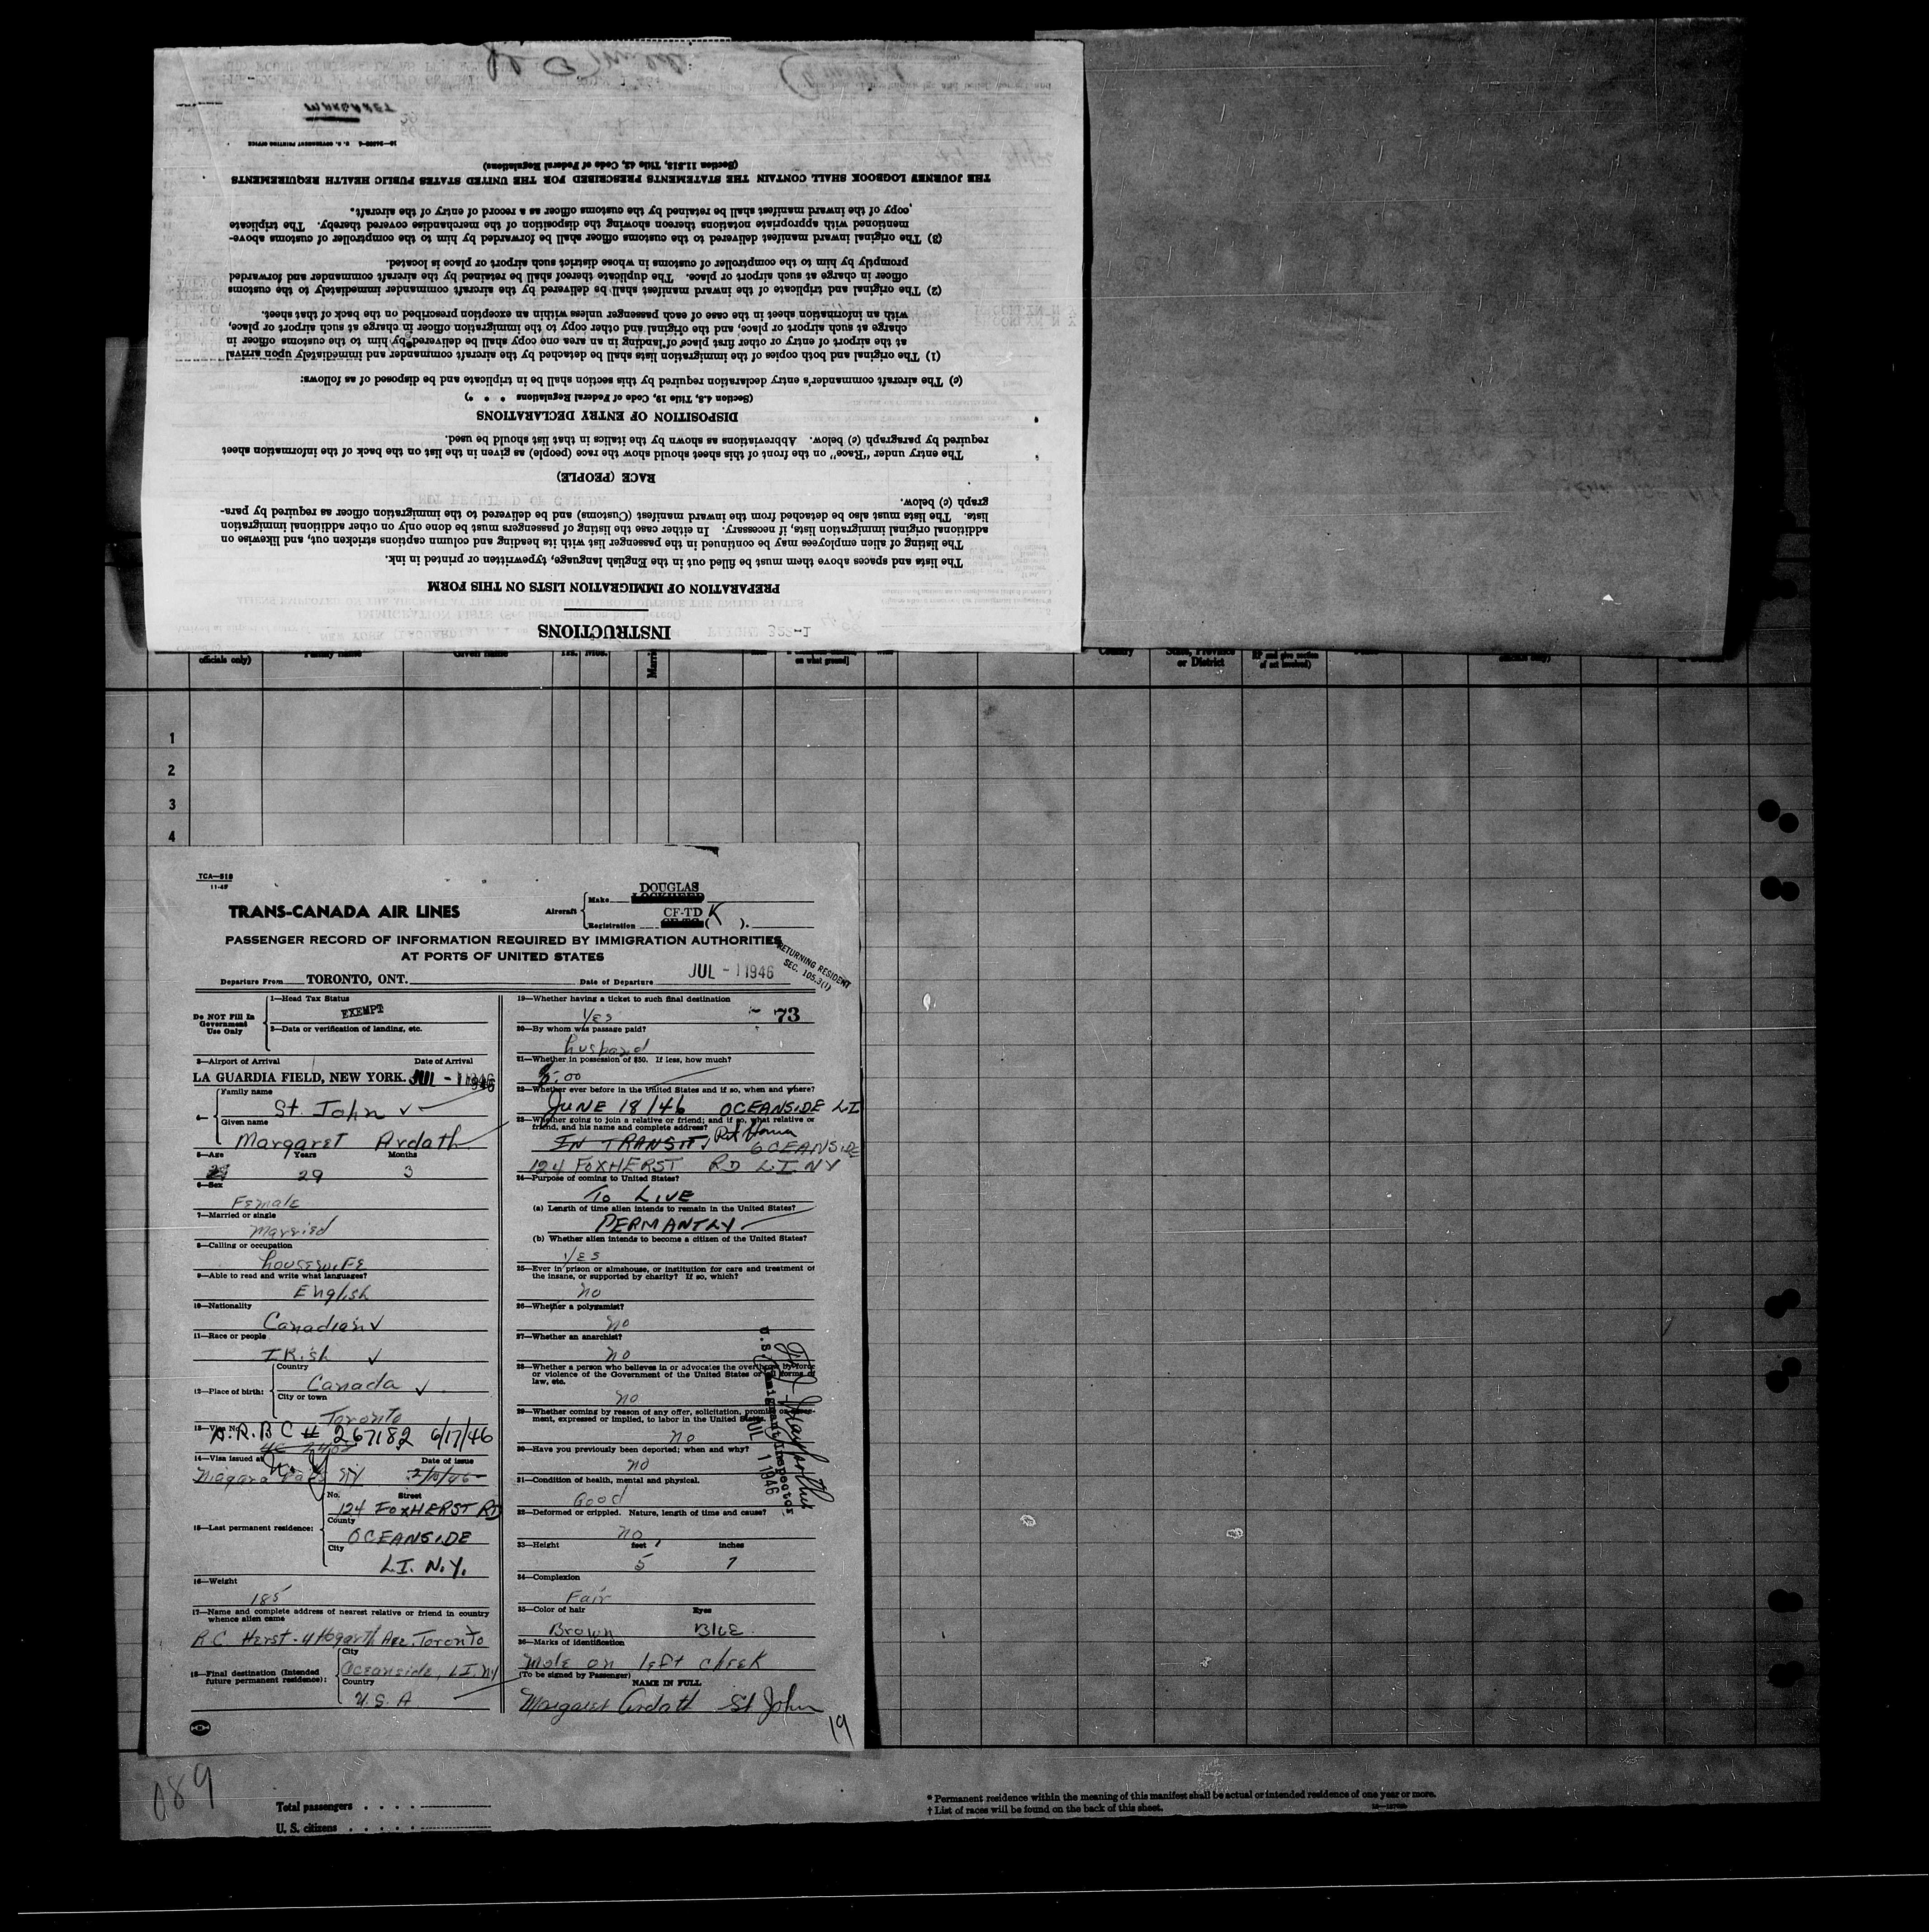 MARGARET
16—24502-4 U. S. GOVERNMENT PRINTING OFFICE
INSTRUCTIONS
PREPARATION OF IMMIGRATION LISTS ON THIS FORM
The lists and spaces above them must be filled out in the English language, typewritten or printed in ink.
The listing of alien employees may be continued in the passenger list with its heading and column captions stricken out, and likewise on
additional original immigration lists, if necessary. In either case the listing of passengers must be done only on other additional immigration
lists. The lists must also be detached from the inward manifest (Customs) and be delivered to the immigration officer as required by para-
graph (c) below.
RACE (PEOPLE)
The entry under "Race" on the front of this sheet should show the race (people) as given in the list on the back of the information sheet
required by paragraph (c) below. Abbreviations as shown by the italics in that list should be used.
DISPOSITION OF ENTRY DECLARATIONS
(Section 4.8, Title 19, Code of Federal Regulations * * *)
(c) The aircraft commander's entry declaration required by this section shall be in triplicate and be disposed of as follows:
(1) The original and both copies of the immigration lists shall be detached by the aircraft commander and immediately upon arrival
at the airport of entry or other first place of landing in an area one copy shall be delivered by him to the customs officer in
charge at such airport or place, and the original and other copy to the immigration officer in charge at such airport or place,
with an information sheet in the case of each passenger unless within an exception prescribed on the back of that sheet.
(2) The original and triplicate of the inward manifest shall be delivered by the aircraft commander immediately to the customs
officer in charge at such airport or place. The duplicate thereof shall be retained by the aircraft commander and forwarded
promptly by him to the comptroller of customs in whose district such airport or place is located.
(3) The original inward manifest delivered to the customs officer shall be forwarded by him to the comptroller of customs above-
mentioned with appropriate notations thereon showing the disposition of the merchandise covered thereby. The triplicate
copy of the inward manifest shall be retained by the customs officer as a record of entry of the aircraft.
THE JOURNEY LOGBOOK SHALL CONTAIN THE STATEMENTS PRESCRIBED FOR THE UNITED STATES PUBLIC HEALTH REQUIREMENTS
(Section 11.513, Title 42, Code of Federal Regulations)
officials only) Family name Given name Yrs. Mos. on what ground] Country State, Province
or District
1
2
3
4
TCA—518
11-45
TRANS-CANADA AIR LINES
Aircraft Make DOUGLAS
Registration CF-TD (K).
PASSENGER RECORD OF INFORMATION REQUIRED BY IMMIGRATION AUTHORITIES
AT PORTS OF UNITED STATES
RETURNING RESIDENT
SEC. 105.3(1)
Departure From TORONTO, ONT. Date of Departure JUL - 1 1946
Do NOT Fill In
Government
Use Only
1—Head Tax Status
EXEMPT
2—Data or verification of landing, etc.
3—Airport of Arrival Date of Arrival
LA GUARDIA FIELD, NEW YORK. JUL - 1 1946
4— Family name
St. John
Given name
Margaret Ardath
5—Age Years Months
29 3
6—Sex
Female
7—Married or single
Married
8—Calling or occupation
housewife
9—Able to read and write what languages?
English
10—Nationality
Canadian
11—Race or people
Irish
12—Place of birth: Country
Canada
City or town
Toronto
13—Visa No.
A.R.B C # 267182 6/17/46
14—Visa issued at Date of issue
Niagara Falls NY
15—Last permanent residence: No. Street
124 FOXHERST RD
County
OCEANSIDE
City
L.I. N.Y.
16—Weight
185
17—Name and complete address of nearest relative or friend in country
whence alien came
R.C. Herst - 4 Hogarth Ave. Toronto
18—Final destination (Intended
future permanent residence): City
Oceanside, L.I. NY
Country
U.S.A
19—Whether having a ticket to such final destination
Yes 73
20—By whom was passage paid?
husband
21—Whether in possession of $50. If less, how much?
5.00
22—Whether ever before in the United States and if so, when and where?
JUNE 18/46 OCEANSIDE L I
23—Whether going to join a relative or friend; and if so, what relative or
friend, and his name and complete address?
IN TRANSIT. Ret Home OCEANSIDE
124 FOXHERST RD L I NY
24—Purpose of coming to United States?
To LIVE
(a) Length of time alien intends to remain in the United States?
PERMANTLY
(b) Whether alien intends to become a citizen of the United States?
YES
25—Ever in prison or almshouse, or institution for care and treatment of
the insane, or supported by charity? If so, which?
no
26—Whether a polygamist?
no
27—Whether an anarchist?
no
28—Whether a person who believes in or advocates the overthrow by force
or violence of the Government of the United States or all forms of
law, etc.
no
29—Whether coming by reason of any offer, solicitation, promise or agree-
ment, expressed or implied, to labor in the United States.
no
30—Have you previously been deported; when and why?
no
31—Condition of health, mental and physical.
Good
32—Deformed or crippled. Nature, length of time and cause?
no
33—Height feet inches
5 7
34—Complexion
Fair
35—Color of hair Eyes
Brown Blue
36—Marks of identification
Mole on left cheek
(To be signed by Passenger) NAME IN FULL
Margaret Ardath St John
U.S. Immigrant Inspector
JUL 1 1946
19
089
Total passengers . . . .
U. S. citizens . . . . .
* Permanent residence within the meaning of this manifest shall be actual or intended residence of one year or more.
† List of races will be found on the back of this sheet.